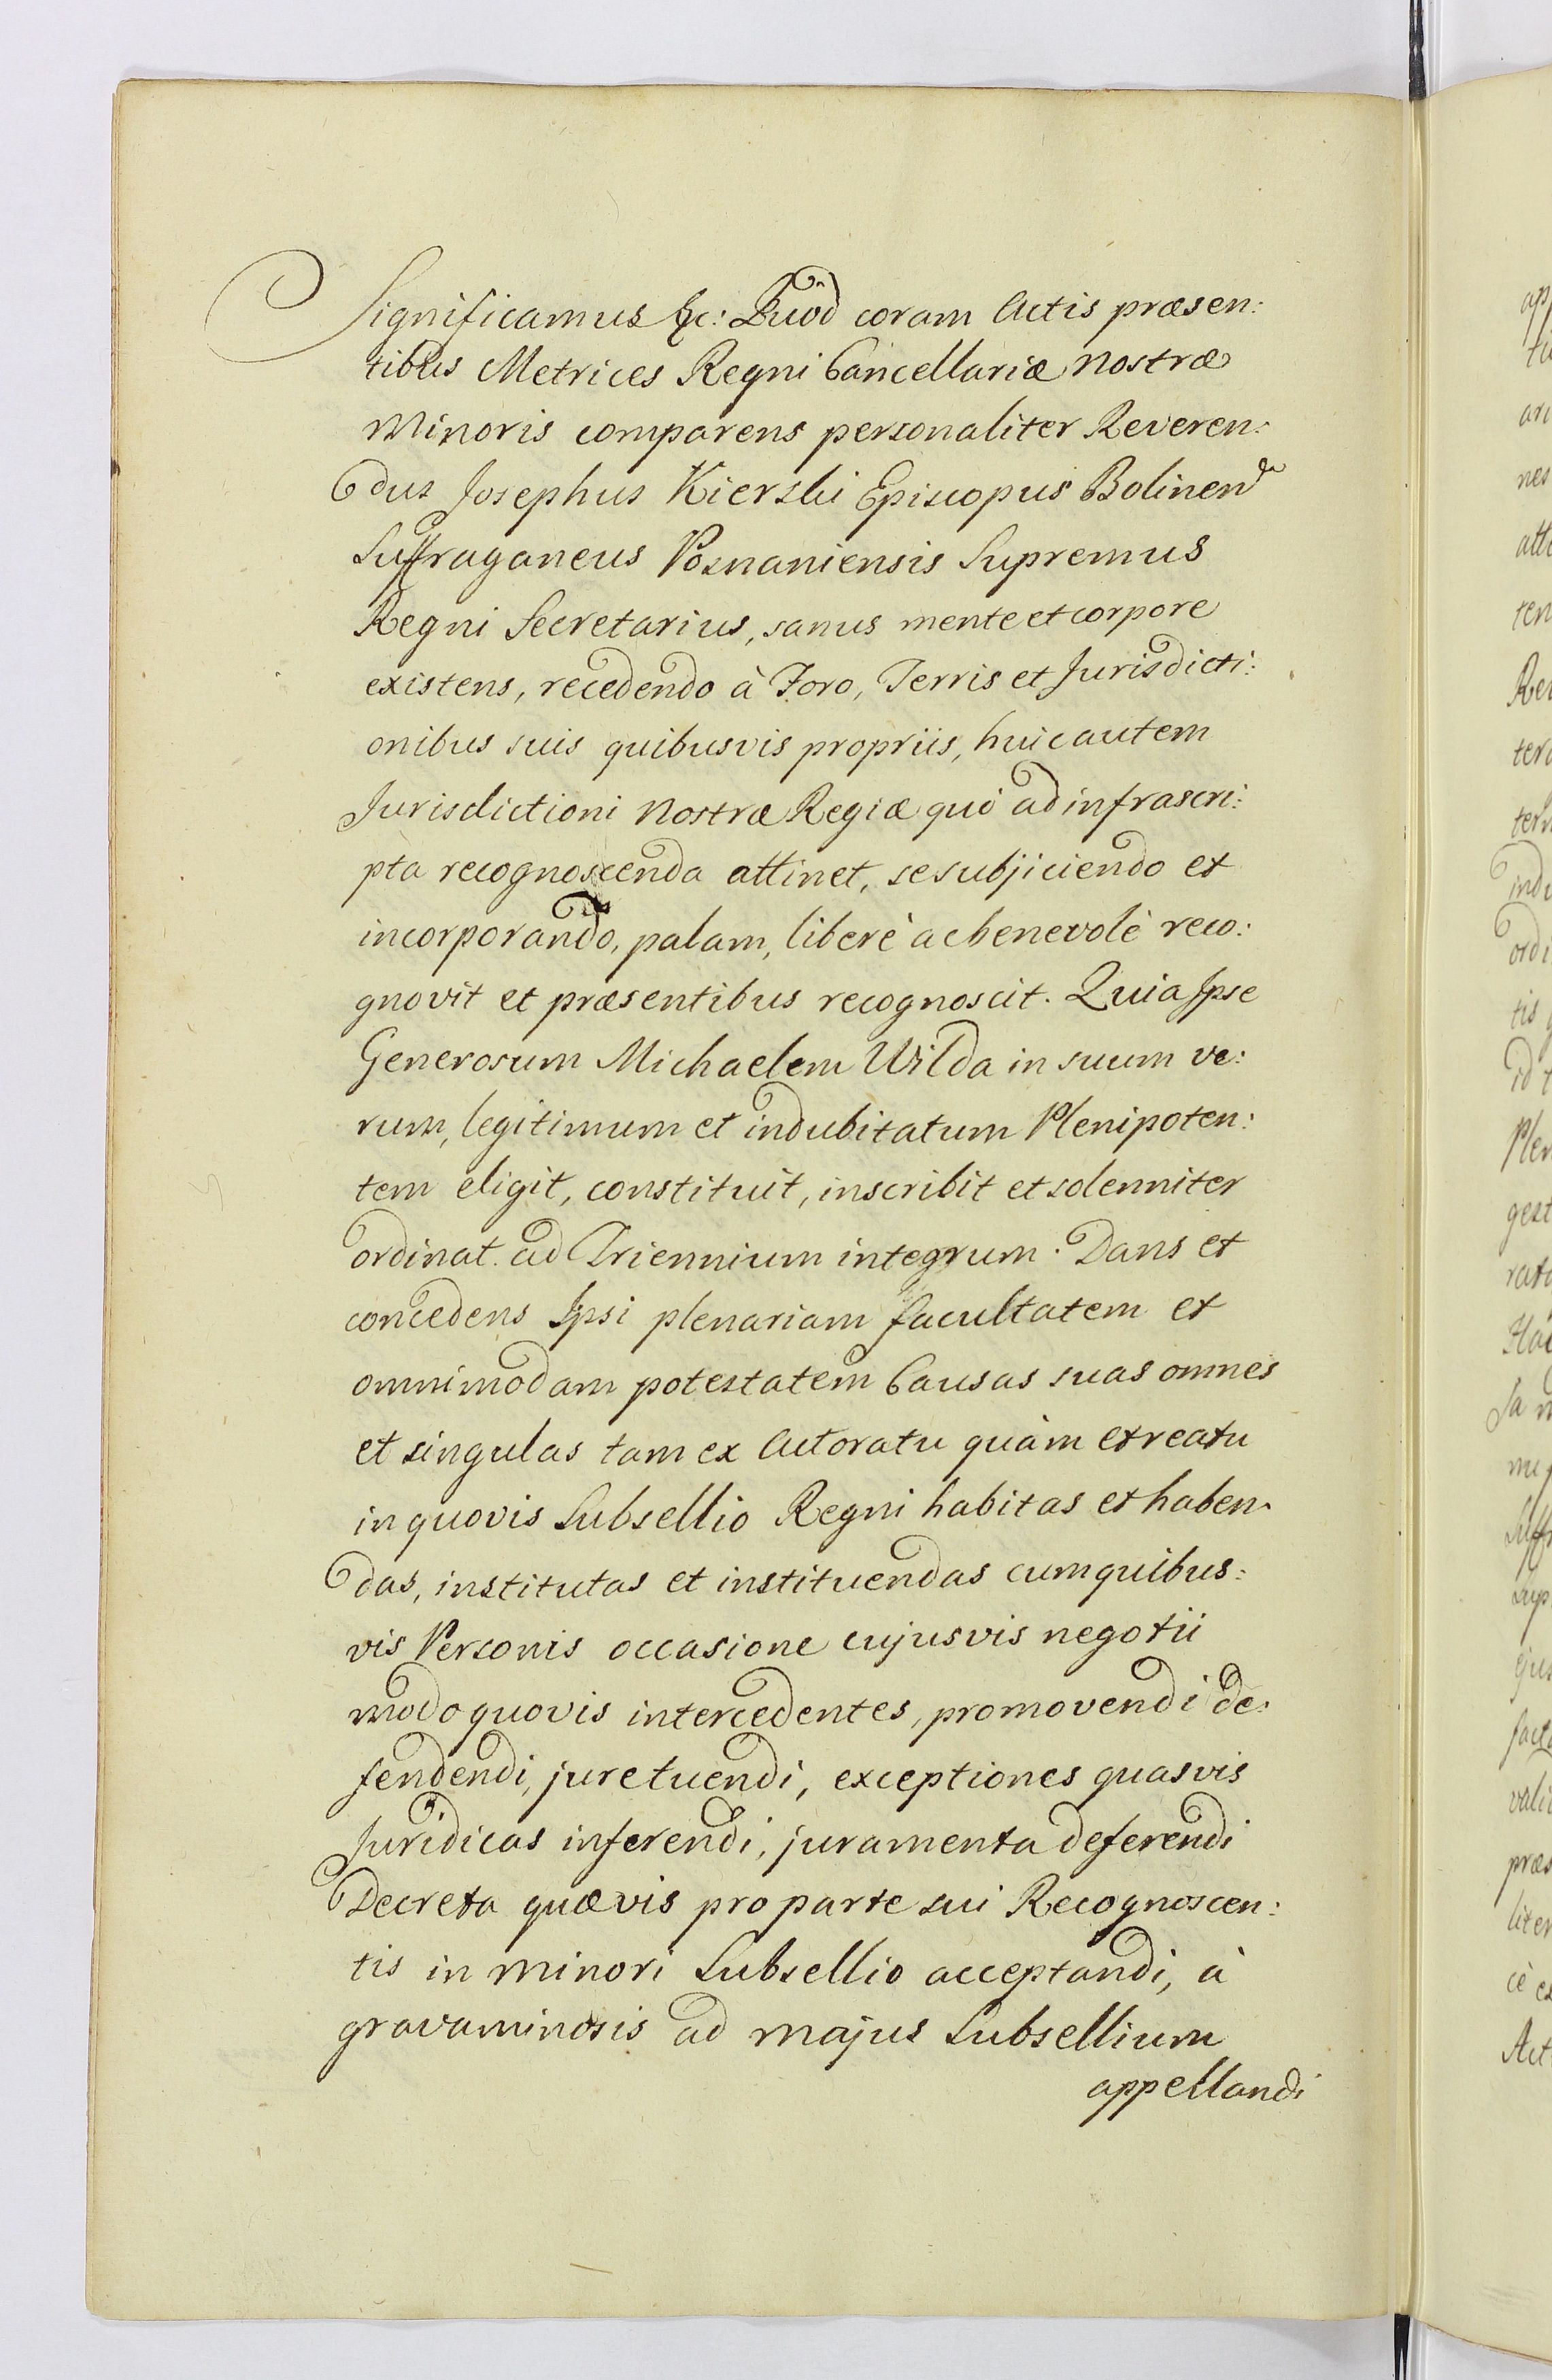 Significamus &c: Quod coram Actis præsen:
tibus Metrices Regni Cancellariæ nostræ
Minoris comparens personaliter Reveren:
dus Josephus Kierski Episcopus Bolinen
Suffraganeus Posnaniensis Supremus
Regni Secretarius, sanus mente et corpore
existens, recedendo à Foro, Terris et Jurisdicti:
onibus suis quibusvis propriis, huic autem
Jurisdictioni nostræ Regiæ quò ad infrascri:
pta recognoscenda attinet, se subjiciendo et
incorporando, palam, liberè ac benevolè reco:
gnovit et præsentibus recognoscit. Quia Ipse
Generosum Michaelem Wilda in suum ve:
rum, legitimum et indubitatum Plenipoten:
tem eligit, constituit, inscribit et solenniter
ordinat ad Triennium integrum. Dans et
concedens Ipsi plenariam facultatem et
omnimodam potestatem Causas suas omnes
et singulas tam ex Actoratu quàm et reatu
in quovis Subsellio Regni habitas et haben
das, institutas et instituendas cum quibus:
vis Personis occasione cujusvis negotii
modo quovis intercedentes, promovendi de:
fendendi, jure tuendi, exceptiones quasvis
Juridicas inferendi, juramenta deferendi
Decreta quævis pro parte sui Recognoscen:
tis in minori Subsellio acceptandi, à
gravaminosis ad majus Subsellium
appellandi